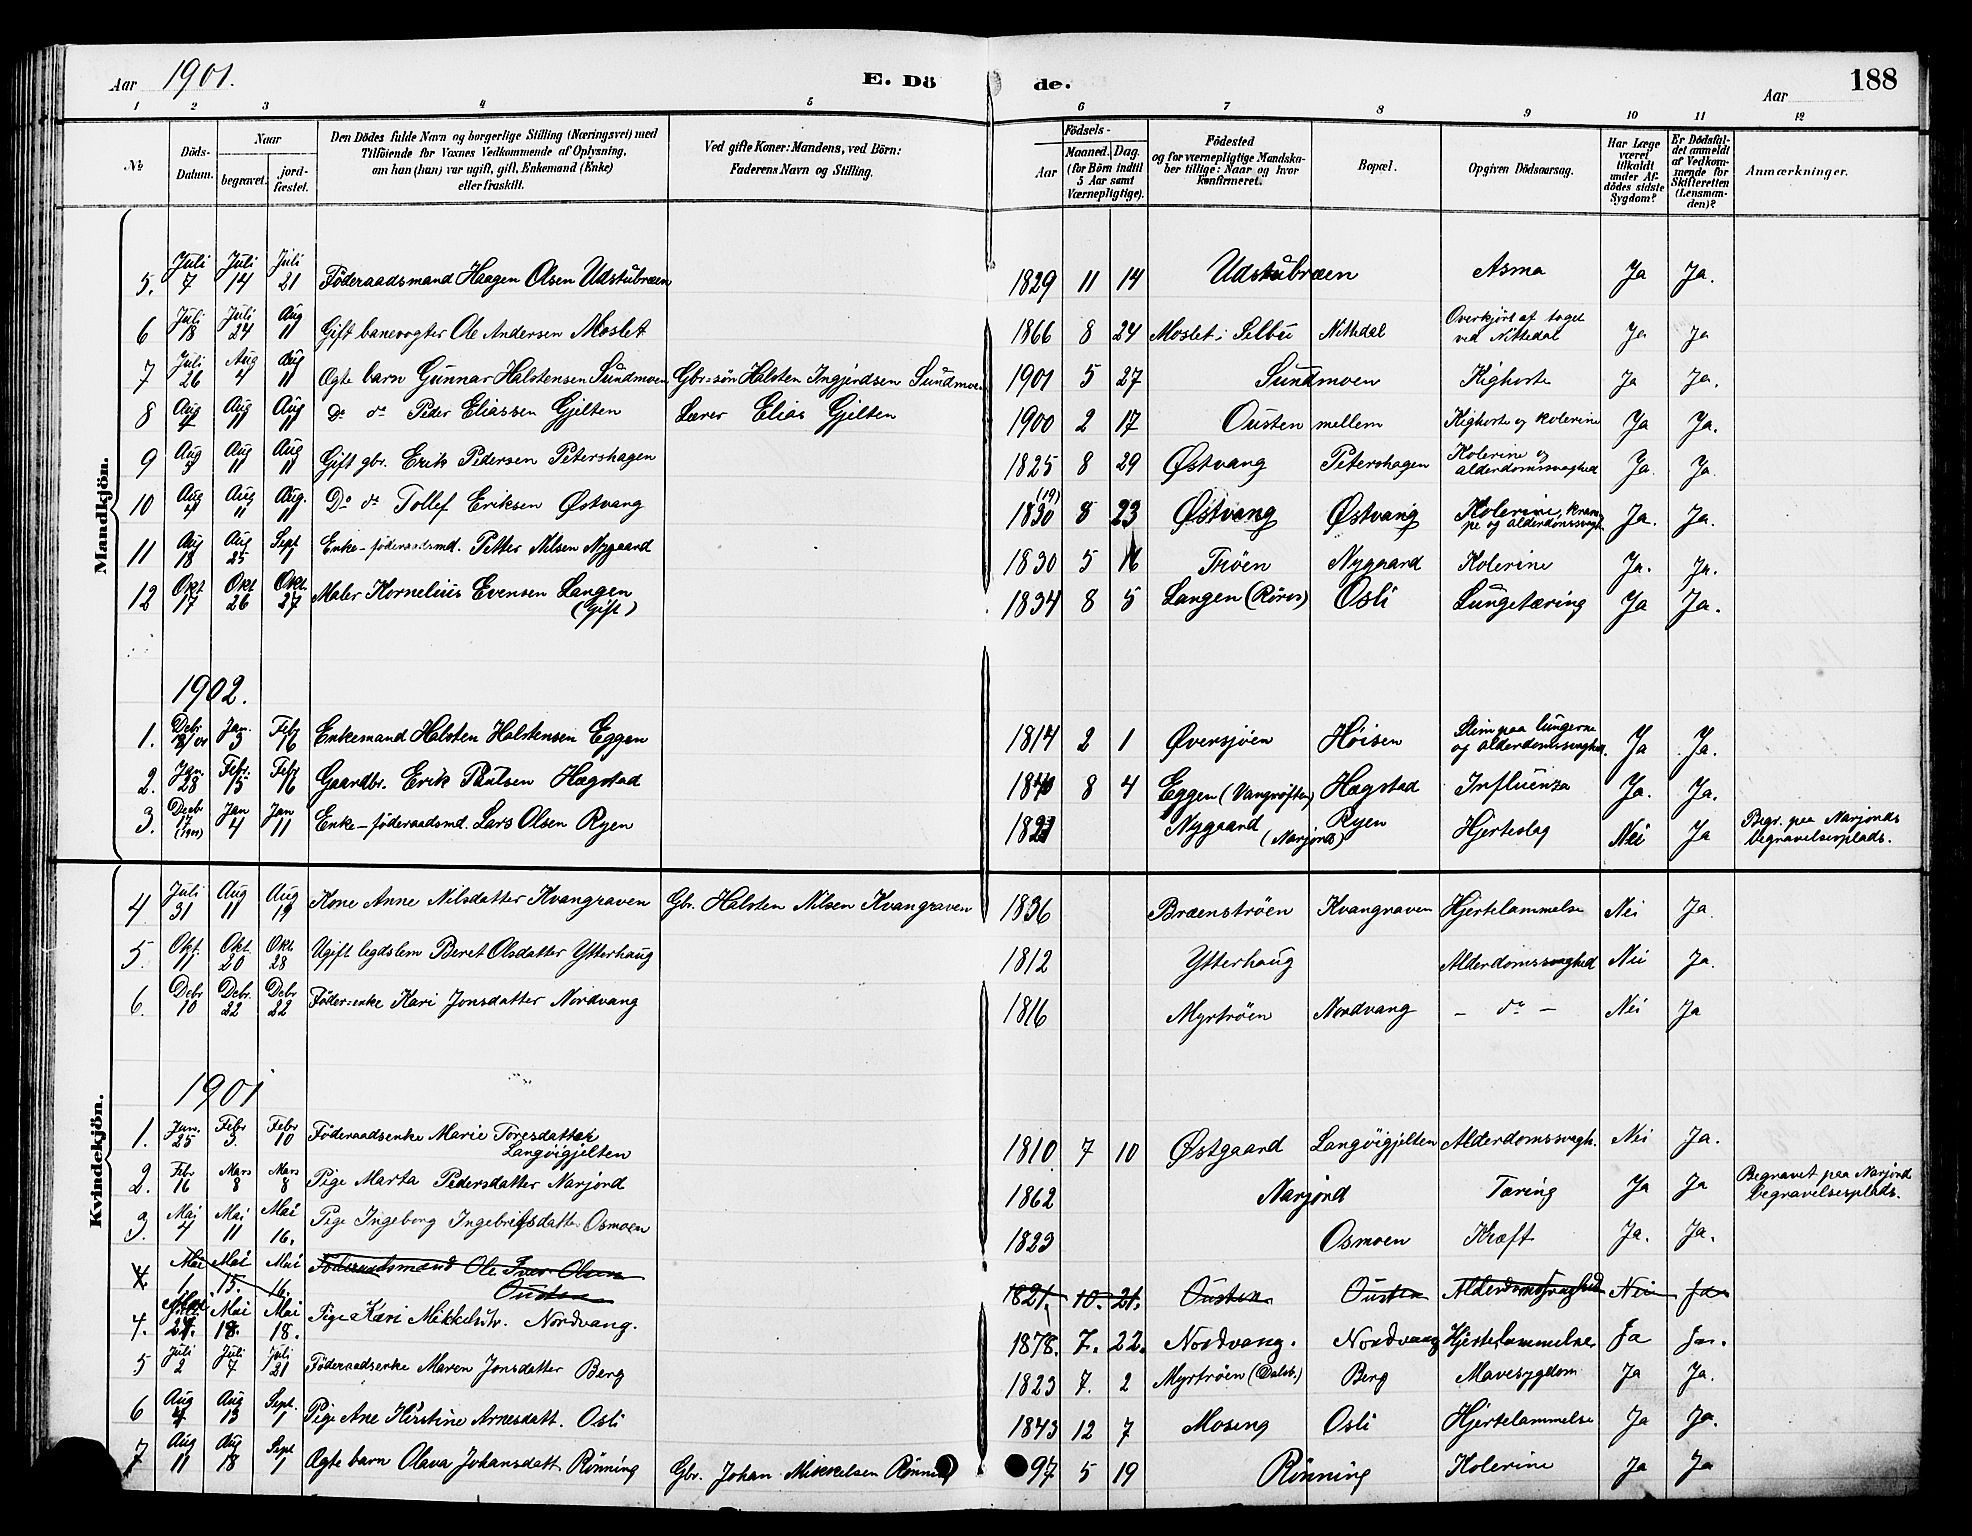 Aar 1901. E. Dö de. Aar 188
1 2 3 4 5 6 7 8 9 10 11 12
No
Döds-Datum.
Naar
begravet. jord-fæstet.
Den Dödes fulde Navn og borgerlige Stilling (Næringsvei) med
Tilföiende for Voxnes Vedkommende af Oplysning,
om han (hun) var ugift, gift, Enkemand (Enke)
eller fraskilt.
Ved gifte Koner: Mandens, ved Börn:
Faderens Navn og Stilling.
Födsels-
Aar Maaned. Dag.
(for Börn indtil
5 Aar samt
Værnepligtige).
Födested
og for værnepligtige Mandska-
ber tillige: Naar og hvor
konfirmeret.
Bopæl.
Opgiven Dödsaarsag.
Har Læge
været
tilkaldt
under Af-
dödes sidste
Sygdom?
Er Dödsfal-
det anmeldt
af Vedkom-
mende for
Skifteretten
(Lensman-
den)?
Anmærkninger.
Mandkjön.
5. Juli 7 Juli 14 Juli 21 Föderaadsmand Haagen Olsen Udstubræen 1829 11 14 Udstubræen Asma Ja Ja.
6 Juli 18 Juli 24 Aug 11 Gift banevogter Ole Andersen Moslet 1866 8 24 Moslet i Selbu Nittedal Overkjørt af toget ved Nittedal Ja Ja
7 Juli 26 Aug 4 Aug 11 Ægte barn Gunnar Halstensen Sundmoen Gbr.søn Halsten Ingjerdsen Sundmoen 1901 5 27 Sundmoen Kighoste Ja Ja.
8 Aug Aug 11 Aug 11 Do do Peder Eliassen Gjelten Lærer Elias Gjelten 1900 2 17 Ousten mellem Kighoste og kolerine Ja Ja.
9 Aug 3 Aug 11 Aug 11 Gift gbr. Erik Pedersen Petershagen 1825 8 29 Østvang Petershagen Kolerine og alderdomssvaghed Ja. Ja.
10 Aug 4 Aug 11 Aug. 11 Do do Tollef Eriksen Østvang 1830 (19) 8 23 Østvang Østvang Kolerine, krampe og alderdomssvagh. Ja. Ja.
11 Aug 18 Aug 25 Sept 1 Enke-föderaadsmd. Petter Nilsen Nygaard 1830 5 16 Trøen Nygaard Kolerine Ja. Ja.
12 Okt 17 Okt 26 Okt. 27 Maler Kornelius Evensen Langen (Gift) 1834 8 5 Langen (Røros) Osli Lungetæring Ja Ja.
1902.
1. Debr 18/01 Jan. 3 Feb 16 Enkemand Halsten Halstensen Eggen 1814 2 1 Øversjøen Høisen Slim paa lungerne og alderdomssvaghed. Ja Ja.
2. Jan. 28 Febr. 15 Feb 16 Gaardbr. Erik Paulsen Hægstad 1840 8 4 Eggen (Vangrøften) Hægstad Influenza Ja. Ja.
3. Decbr 17 Jan 4 Jan 11 Enke-föderaadsmd. Lars Olsen Ryen Nygaard (Narjord) Ryen Hjerteslag Nei Ja Begr. paa Narjords begravelsesplads.
Kvindekjön.
4 Juli 31 Aug 11 Aug 19 Kone Anne Nilsdatter Kvangraven Gbr. Halsten Nilsen Kvangraven 1836 Bræenstrøen Kvangraven Hjertelammelse Nei Ja.
5. Okt. 11 Okt. 20 Okt. 28 Ugift legdslem Beret Olsdatter Ytterhaug 1812 Ytterhaug Alderdomssvaghed Nei Ja.
6. Debr 10 Debr. 22 Debr 22 Föder.enke Kari Jonsdatter Nordvang 1816 Myrtrøen Nordvang – do – Nei Ja
1901
1. Jan. 25 Febr 3. Febr 10 Föderaadsenke Marie Toresdatter Langvigjelten 1810 7 10 Østgaard Langvigjelten Alderdomssvagh. Nei Ja.
2. Feb 16 Mars 8 Mars 8 Pige Marta Pedersdatter Narjord 1862 Narjord Tæring Ja Ja Begravet paa Narjord begravelsesplads.
3. Mai 4 Mai 11 Mai 16. Pige Ingeborg Ingebretsdatter Osmoen 1823 Osmoen Kræft Ja. Ja.
4. Mai 1. Mai 15. Mai 16. Föderaadsmand Ole Olsen Ousten 1821. 10. 21. Ousten Ousten Alderdomssvaghed Nei Ja
4. Mai 18. Mai 18. Pige Kari Mikkelsdtr. Nordvang. 1878. 7. 22. Nordvang. Nordvang Hjertelammelse Ja Ja.
5 Juli 2 Juli 7 Juli 21 Föderaadsenke Maren Jonsdatter Berg 1823 7. 2 Myrtrøen (Dalsb.) Berg Mavesygdom Ja Ja.
6 Aug 4 Aug 13 Sept. 1 Pige Ane Kirstine Arnesdatt. Osli 1843 12 7 Moseng Osli Hjertelammelse Ja Ja.
7 Aug 11 Aug 18 Sept 1 Ægte barn Olava Johansdatt Rönning Gbr. Johan Mikkelsen Rönning 97 5 19 Rønning Kolerine Ja Ja